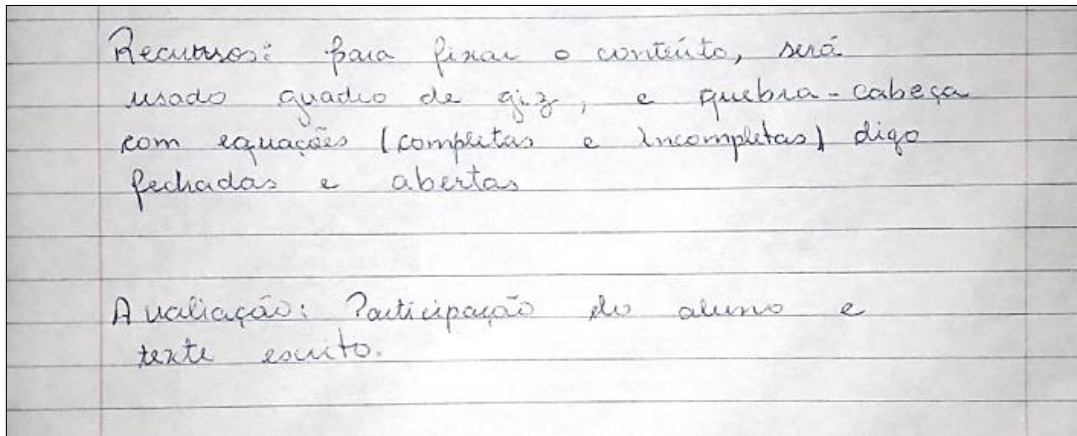 Recursos: para fixar o contéuto, será
usado quadro de giz, e quebra-cabeça
com equações (completas e incompletas) digo
fechadas e abertas
Avaliação: Participação do aluno e
texte escrito.